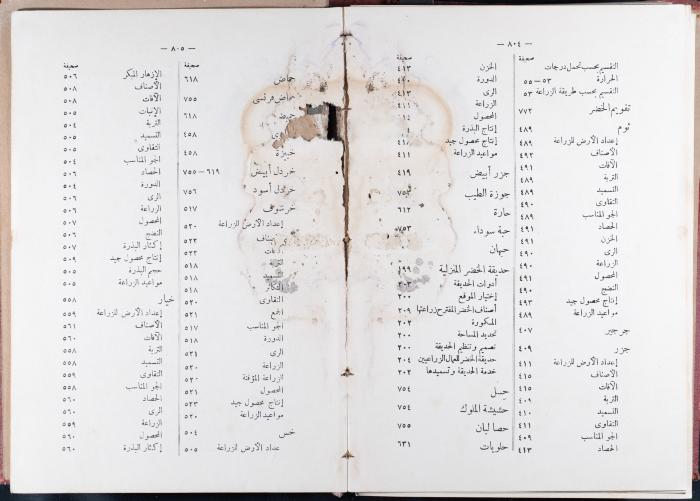 — ٨٠٤ —
صحيفة
التقسيم بحسب تحمل درجات
الحرارة ٥٣—٥٥
التقسيم بحسب طريقة الزراعة ٥٣
تقويم الخضر ٧٧٢
ثوم ٤٨٩
إعداد الأرض للزراعة ٤٨٩
الأصناف ٤٩٢
الآفات ٤٩١
التربة ٤٨٩
التسميد ٤٨٩
التقاوى ٤٩٠
الجو المناسب ٤٨٩
الحصاد ٤٩١
الخزن ٤٩١
الرى ٤٩٠
الزراعة ٤٩٠
المحصول ٤٩١
النضج ٤٩٠
إنتاج محصول جيد ٤٩٣
مواعيد الزراعة ٤٨٩
جرجير ٤٠٧
جزر ٤٠٩
إعداد الأرض للزراعة ٤١١
الأصناف ٤١٥
الآفات ٤١٥
التربة ٤٠٩
التسميد ٤١٠
التقاوى ٤١١
الجو المناسب ٤٠٩
الحصاد ٤١٣
صحيفة
الخزن ٤١٣
الدورة
الرى ٤١٣
الزراعة ٤١١
المحصول
إنتاج البذرة
إنتاج محصول جيد ٤١٨
مواعيد الزراعة ٤١١
جزر أبيض ٤١٩
جوزة الطيب
حارة ٦١٢
حبة سوداء ٧٥٣
حبهان
حديقة الخضر المنزلية ١٩٩
أدوات الحديقة ٢٠٣
إختيار الموقع ٢٠٠
أصناف الخضر المقترح زراعتها ٢٠٩
المكمورة ٢٠٢
تحديد المساحة ٢٠٠
تصميم وتنظيم الحديقة ٢٠٠
حديقة الخضر للعمال الزراعيين ٢٠٤
خدمة الحديقة وتسميدها ٢٠٢
حسل ٧٥٤
حشيشة الملوك ٧٥٤
حصا لبان ٧٥٥
حلويات ٦٣١
— ٨٠٥ —
صحيفة
حماض ٦١٨
حماض فرنسى ٧٥٥
حميض ٦١٨
٤٥٨
خبيزة ٤٥٨
خردل أبيض ٦١٩—٧٥٥
خردل أسود ٧٥٦
خرشوف ٥١٧
إعداد الأرض للزراعة ٥٢٠
الأصناف ٥٢٣
الآفات ٥٢٣
التربة ٥١٨
التسميد ٥١٨
التكاثر ٥١٨
التقاوى ٥٢٠
الجمع ٥٢١
الجو المناسب ٥١٧
الدورة ٥١٨
الرى ٥٢١
الزراعة ٥٢٠
الزراعة المؤقتة ٥٢٠
المحصول ٥٢١
إنتاج محصول جيد ٥٢٣
مواعيد الزراعة ٥٢٠
خس ٥٠٤
إعداد الأرض للزراعة ٥٠٥
صحيفة
الإزهار المبكر ٥٠٦
الأصناف ٥٠٨
الآفات ٥٠٨
الإنبات ٥٠٥
التربة ٥٠٤
التسميد ٥٠٥
التقاوى ٥٠٥
الجو المناسب ٥٠٤
الحصاد ٥٠٦
الدورة ٥٠٤
الرى ٥٠٦
الزراعة ٥٠٥
المحصول ٥٠٧
النضج ٥٠٦
إكثار البذرة ٥٠٧
إنتاج محصول جيد ٥٠٩
حجم البذرة ٥٠٥
مواعيد الزراعة ٥٠٥
خيار ٥٥٨
إعداد الأرض للزراعة ٥٥٩
الأصناف ٥٦١
الآفات ٥٦٠
التربة ٥٥٨
التسميد ٥٥٨
التقاوى ٥٥٩
الجو المناسب ٥٥٨
الحصاد ٥٦٠
الرى ٥٦٠
الزراعة ٥٥٩
المحصول ٥٦٠
إكثار البذرة ٥٦٠